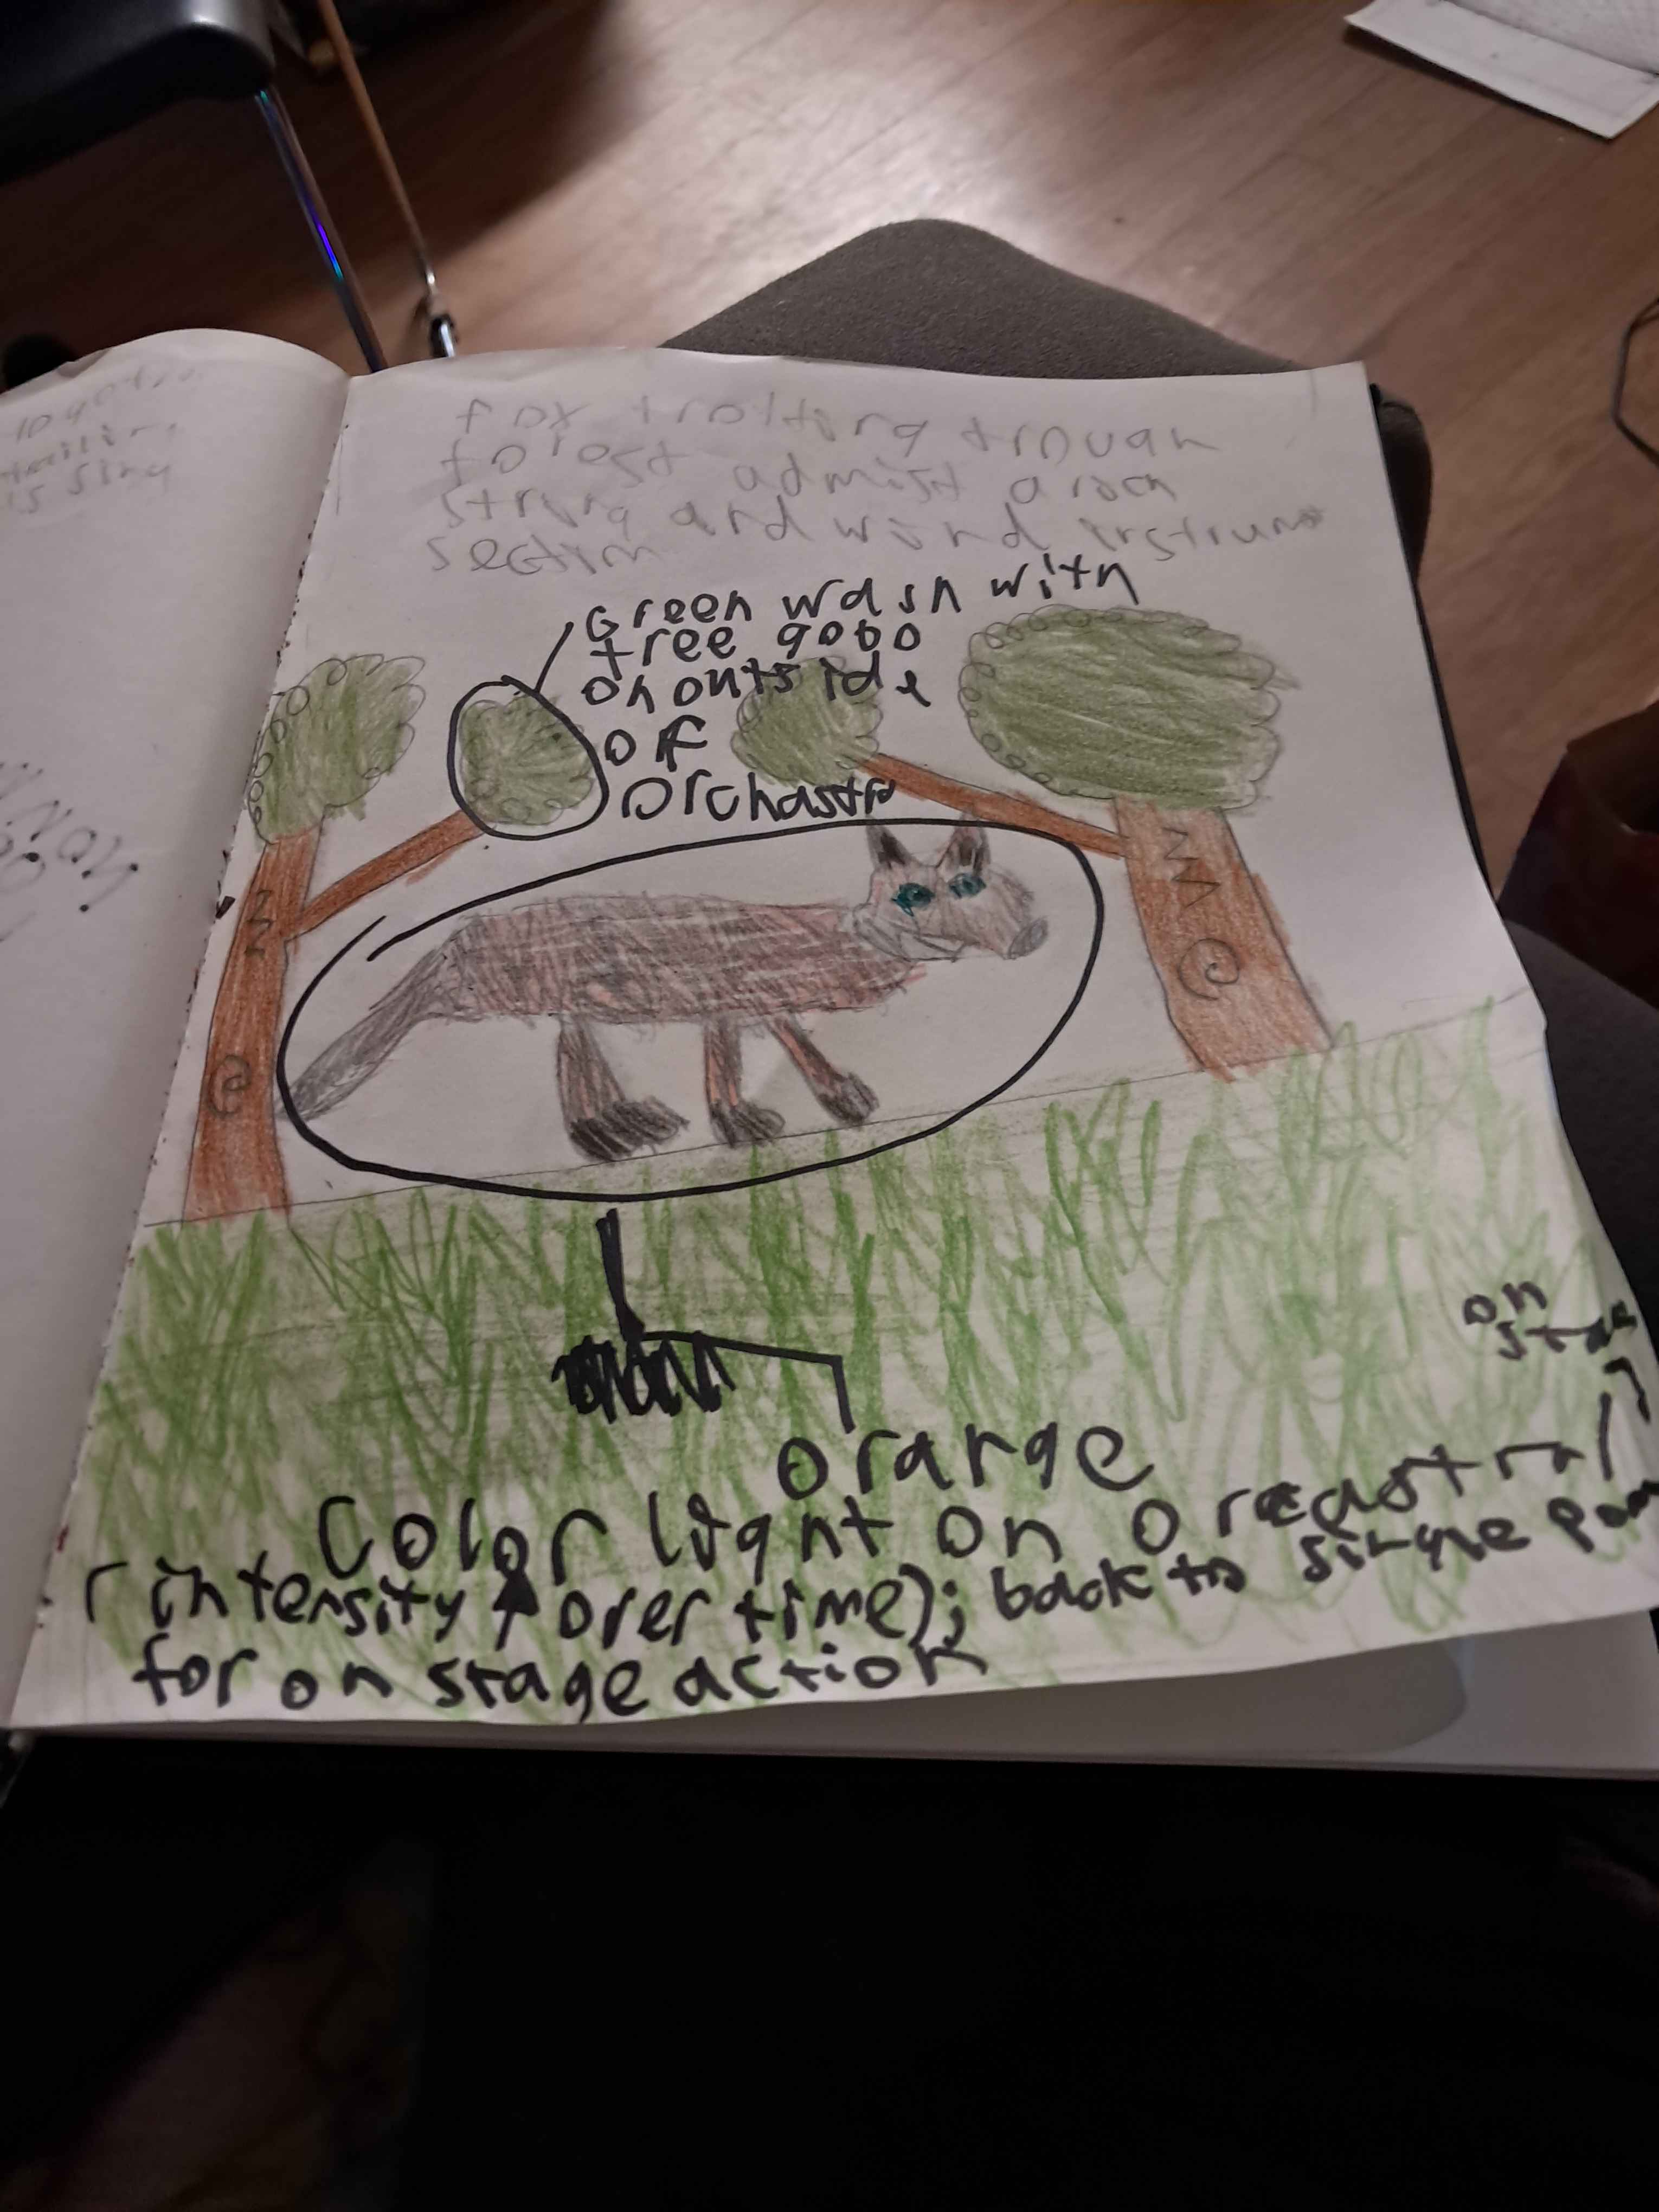 fox trotting trough
forest admist a rock
string and wind instrument
section
Green wash with
tree gobo
on outside
of
orchastra
on
orange
Color light on
(intensity ↑ over time); back to single
for on stage action
is sing